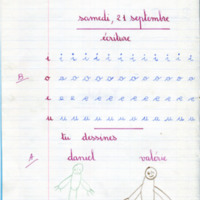 samedi, 21 septembre
écriture
i i i i i i i i i i i i i
B o o o o o o o o o o o o
u u u u u u u u u u u u
tu dessines
A daniel valérie